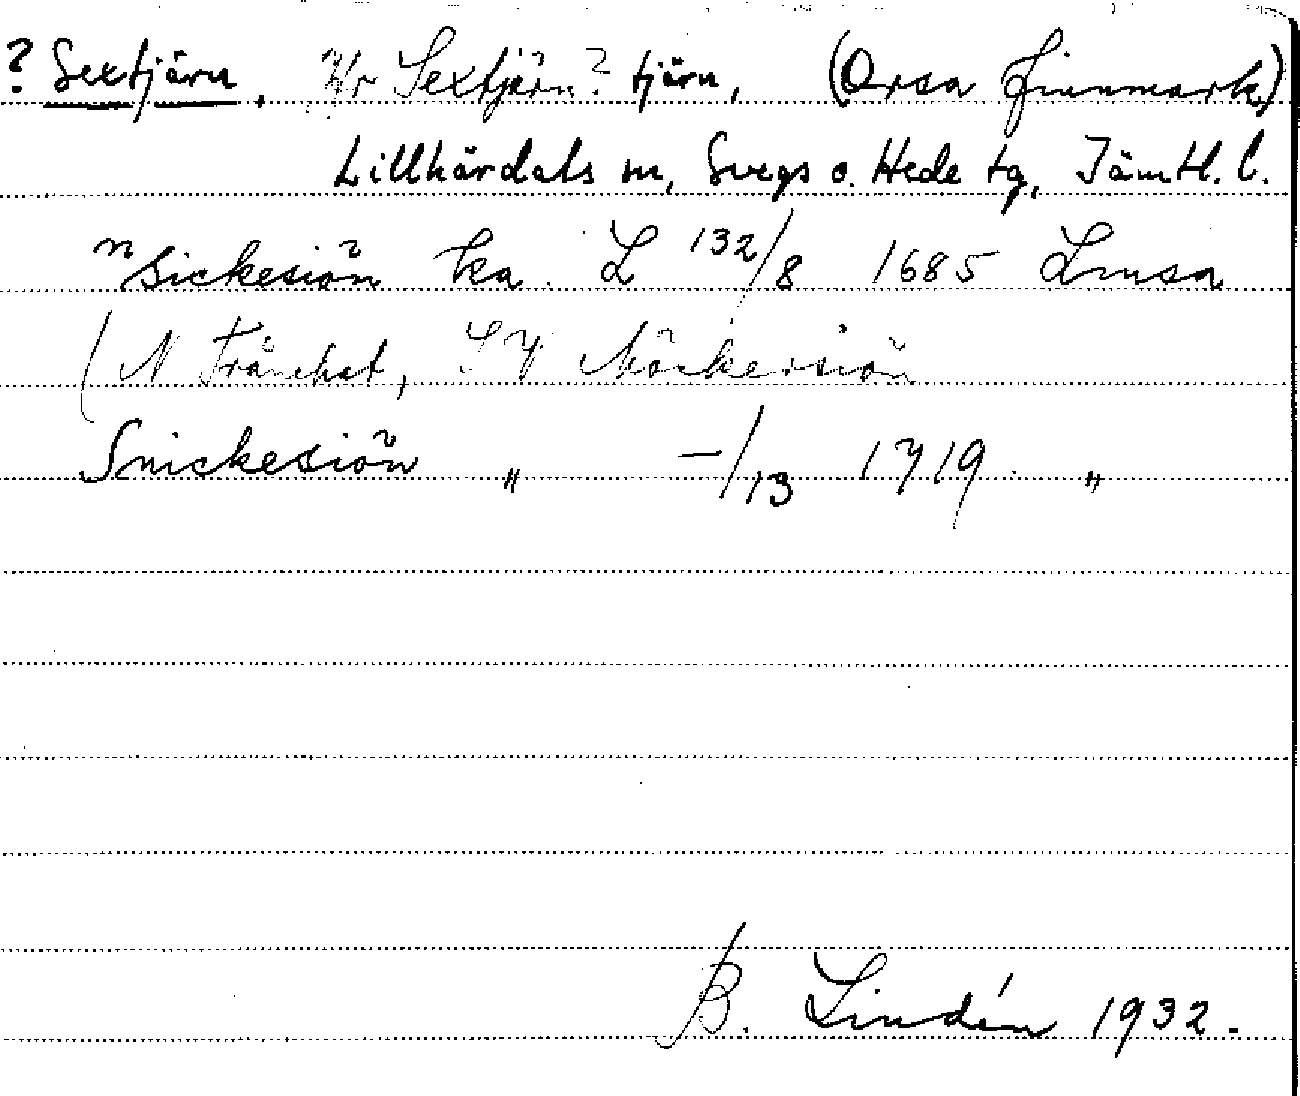 ? Sextjärn, Hr Sextjärn? tjärn, (Orsa Finnmark)
Lillhärdals sn, Svegs o. Hede tg, Jämtl. l.
n Sickesiön ka. L 132/8 1685 Lmsa
(N Tränhat, SV Nöckersiön
Snickesiön " -/13 1719 "
B. Lindén 1932.